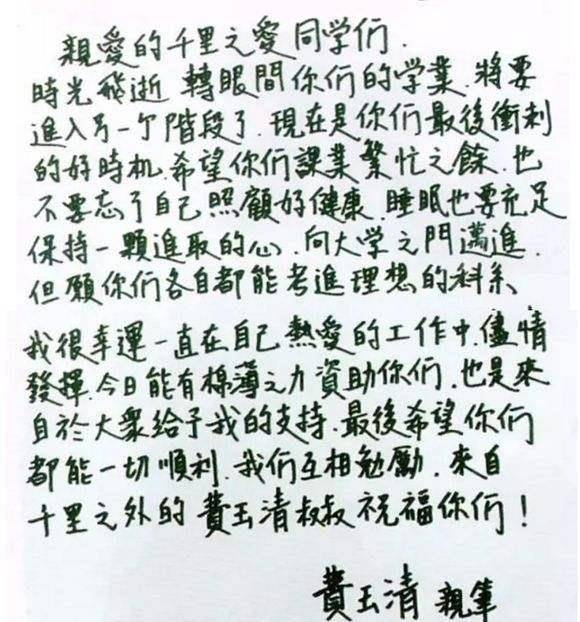 親愛的千里之愛同学们.
時光飛逝 轉眼間你们的学業.將要
進入另一个階段了.現在是你们最後衝刺
的好時机.希望你们課業繁忙之餘.也
不要忘了自己照顧好健康.睡眠也要充足
保持一顆進取的心.向大学之門邁進.
但願你们各自都能考進理想的科系
我很幸運一直在自己熱愛的工作中.儘情
發揮.今日能有棉薄之力資助你们.也是來
自於大衆給予我的支持.最後希望你们
都能一切順利.我们互相勉勵.來自
千里之外的費玉清叔叔祝福你们!
費玉清 親筆